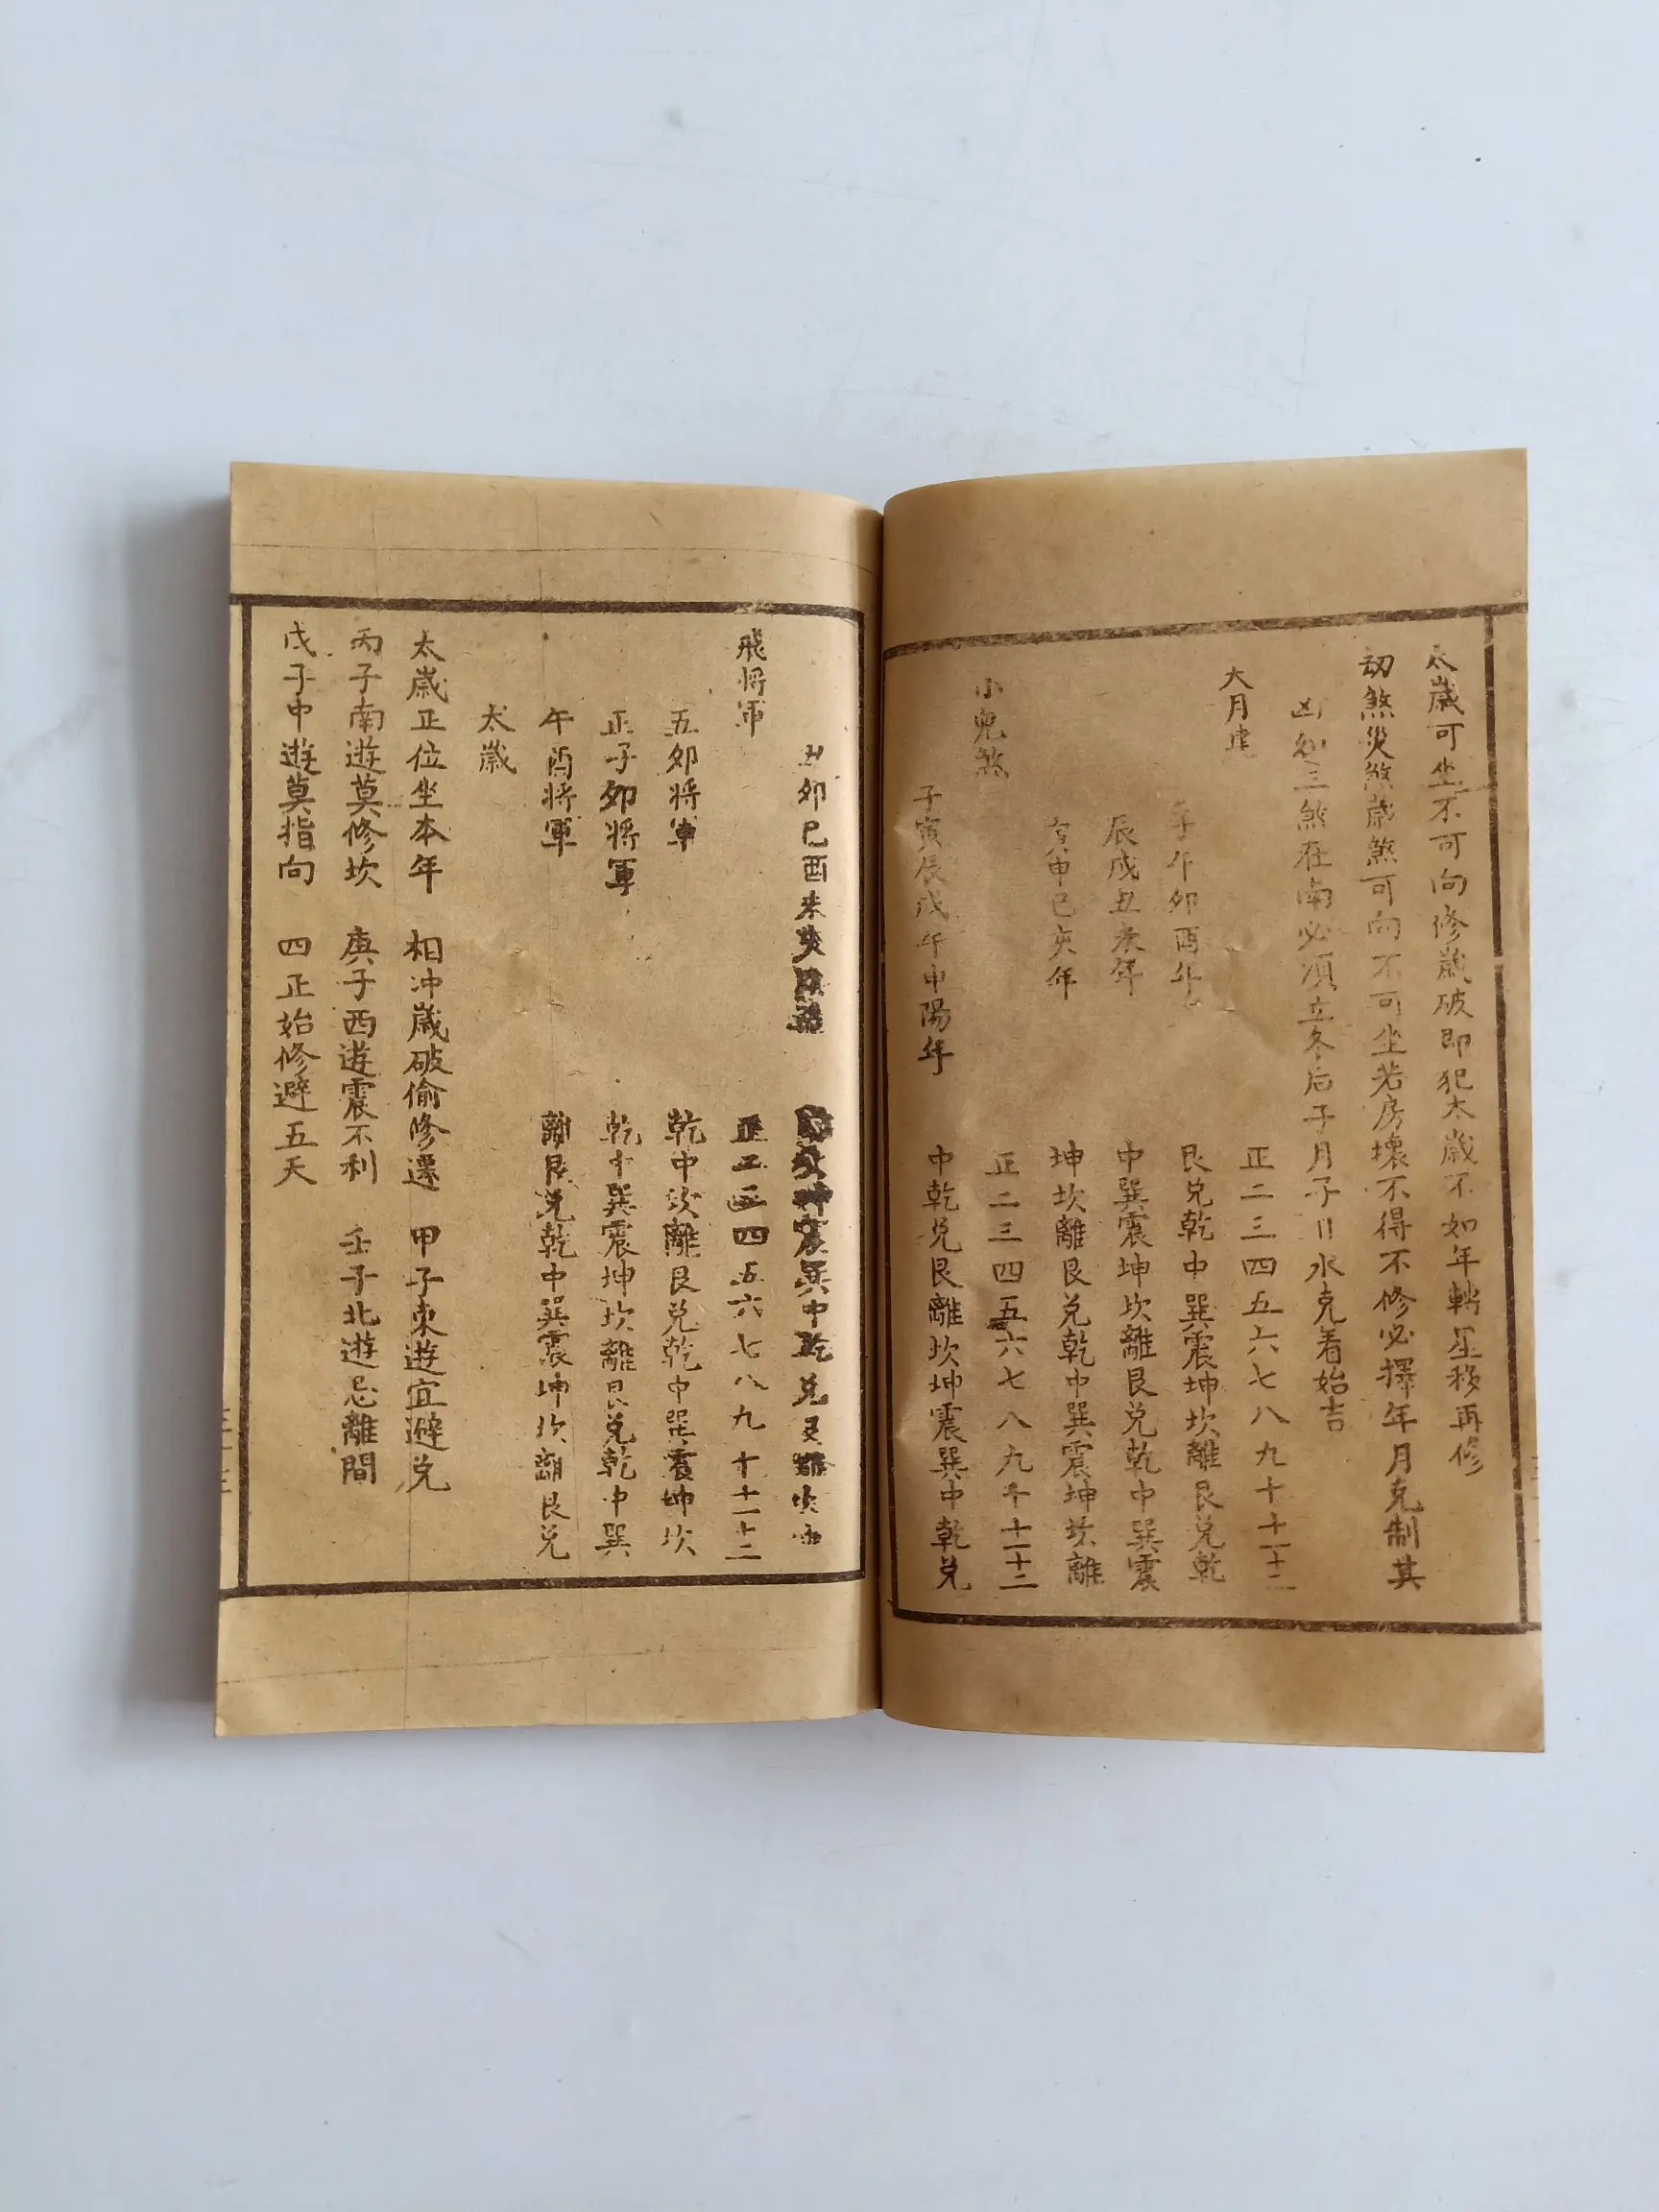 太歲可坐不可向修歲破即犯太歲不如年轉星移再修
劫煞災煞歲煞可向不可坐若房壞不得不修必擇年月克制其
凶如三煞在南必須立冬后子月子日水克着始吉
大月建 正二三四五六七八九十十一十二
子午卯酉年 艮兌乾中巽震坤坎離艮兌乾
辰戌丑未年 中巽震坤坎離艮兌乾中巽震
寅申巳亥年 坤坎離艮兌乾中巽震坤坎離
小兒煞 正二三四五六七八九十十一十二
子寅辰戌午申陽年 中乾兌艮離坎坤震巽中乾兌
丑卯巳酉未亥 震巽中乾兌艮離坎
飛將軍 正二三四五六七八九十十一十二
五卯將軍 乾中坎離艮兌乾中巽震坤坎
正子卯將軍 乾中巽震坤坎離艮兌乾中巽
午酉將軍 離艮兌乾中巽震坤坎離艮兌
太歲
太歲正位坐本年 相冲歲破偷修遷 甲子東遊宜避兌
丙子南遊莫修坎 庚子西遊震不利 壬子北遊忌離間
戊子中遊莫指向 四正始修避五天